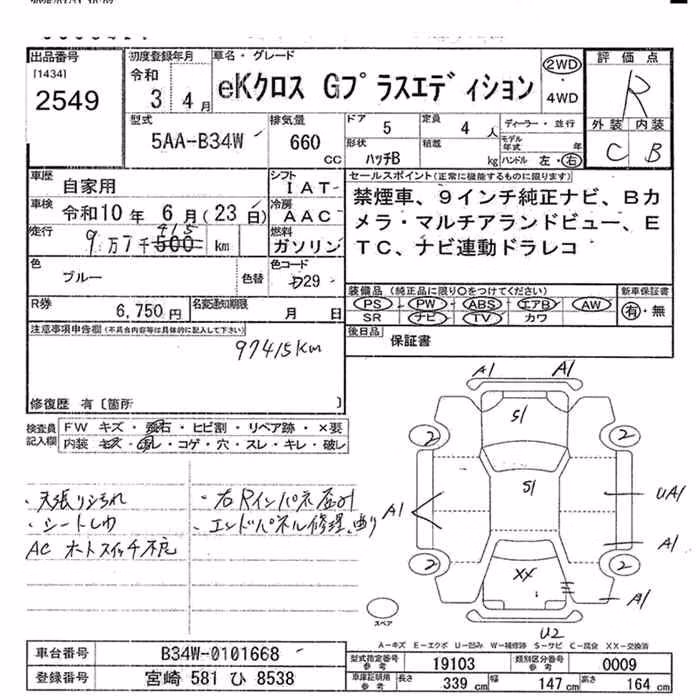 出品番号
[1434]
2549
初度登録年月
令和
3 4月
車名・グレード
eKクロス Gプラスエディション
2WD
・
4WD
評価点
R
外装 内装
C B
型式
5AA-B34W
排気量
660
CC
ドア
5
定員
4 人
ディーラー・並行
モデル
年式 年
形状
ハッチB
積載
kg
ハンドル 左・右
車歴
自家用
シフト
IAT
セールスポイント(正常に機能するものに限ります)
禁煙車、9インチ純正ナビ、Bカ
メラ・マルチアランドビュー、E
TC、ナビ連動ドラレコ
車検
令和10年 6月(23日)
冷房
AAC
走行
9万7千500 415 km
燃料
ガソリン
色
ブルー
色替
色コード
D29
装備品(純正品に限り○をつけてください)
PS PW ABS エアB AW
SR ナビ TV カワ
新車保証書
有・無
R券
6,750円
名変通知期限
月 日
後日品
保証書
注意事項申告欄(不具合内容等は具体的に記入して下さい)
97415Km
修復歴 有〔箇所 〕
検査員
記入欄
FW キズ・飛石・ヒビ割・リペア跡・×要
内装 キズ・汚れ・コゲ・穴・スレ・キレ・破レ
・天張りヨゴれ
・シートしわ
AC オートスイッチ不良
・右Rインパネ歪み
・エンドパネル修理あり
A1 A1
S1
2 2
S1
A1
UA1
A1
2 2
XX
A1
U2
スペア
A-キズ E-エクボ U-凹み W-補修跡 S-サビ C-腐食 XX-交換済
車台番号
B34W-0101668
登録番号
宮崎 581 ひ 8538
型式指定番号
参考
19103
類別区分番号
参考
0009
車庫証明用
参考
長さ 339 cm 幅 147 cm 高さ 164 cm